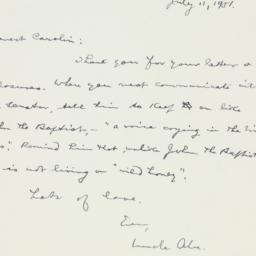 July 11, 1951.
earest Carolin:
Thank you for your letter &
closures. When you next communicate with
Senator, tell him to keep on like
hn the Baptist, — "a voice crying in the wi
s". Remind him that, unlike John the Baptist
is not living on "wild honey".
Lots of love.
Ever,
Uncle Abe.